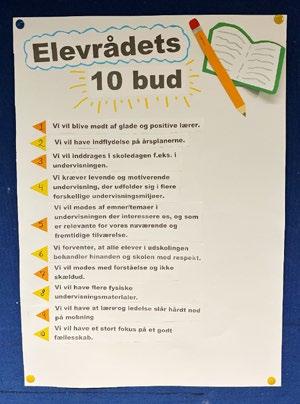 Elevrådets
10 bud
1 Vi vil blive mødt af glade og positive lærer.
2 Vi vil have indflydelse på årsplanerne.
3 Vi vil inddrages i skoledagen f.eks. i
undervisningen.
4 Vi kræver levende og motiverende
undervisning, der udfolder sig i flere
forskellige undervisningsmiljøer.
5 Vi vil mødes af emner/temaer i
undervisningen der interesserer os, og som
er relevante for vores nuværende og
fremtidige tilværelse.
6 Vi forventer, at alle elever i udskolingen
behandler hinanden og skolen med respekt.
7 Vi vil mødes med forståelse og ikke
skældud.
8 Vi vil have flere fysiske
undervisningsmaterialer.
9 Vi vil have at lærer og ledelse slår hårdt ned
på mobning
Vi vil have et stort fokus på et godt
fællesskab.